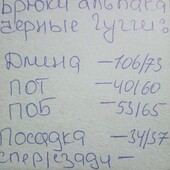 Брюки альпака
черные Гуччи:
Длина — 106/73
ПОТ — 40/60
ПОБ — 53/65
Посадка — 34/37
спер/сзади —